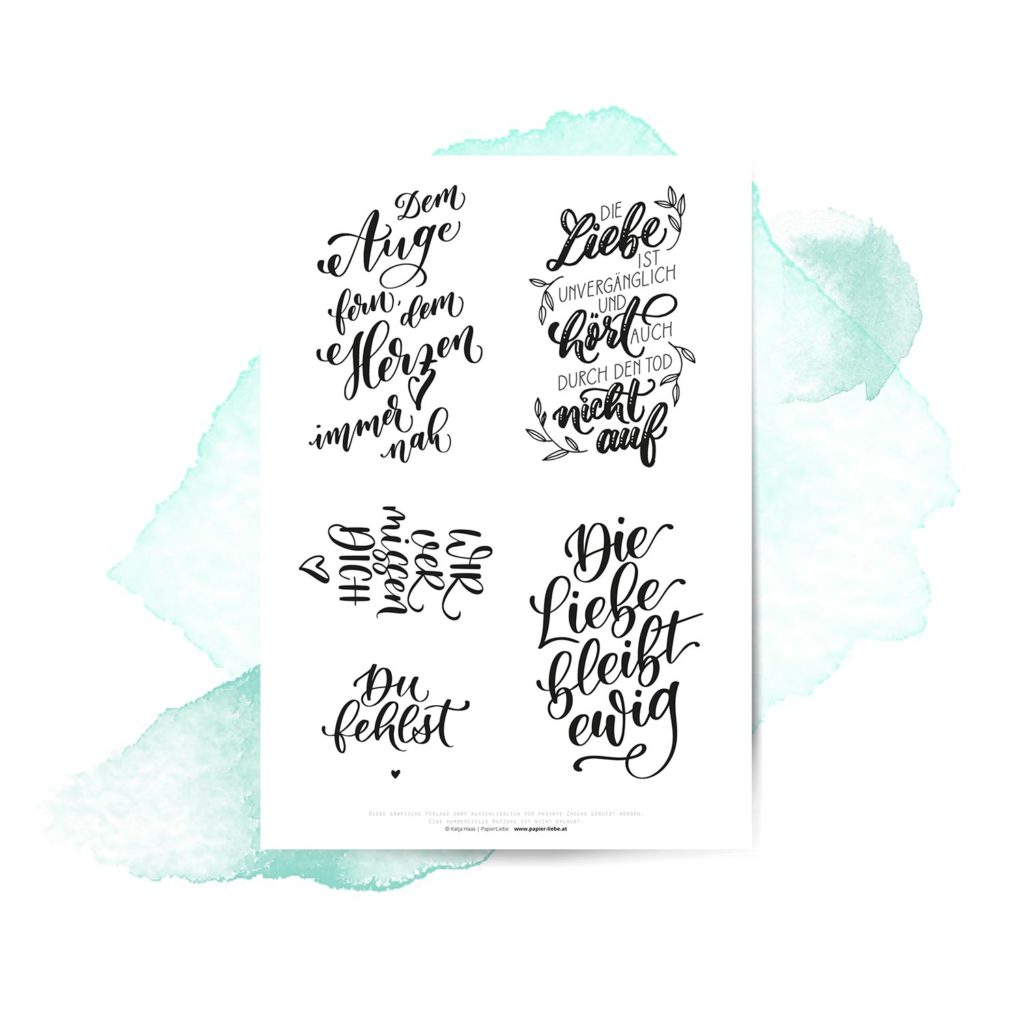 Dem
Auge
fern, dem
Herzen
immer
nah
DIE
Liebe
IST
UNVERGÄNGLICH
UND
hört
AUCH
DURCH DEN TOD
nicht
auf
WIR
VER
missen
DICH
Du
fehlst
Die
Liebe
bleibt
ewig
Diese grafische Vorlage darf ausschließlich für private Zwecke genutzt werden.
Eine kommerzielle Nutzung ist nicht erlaubt.
© Katja Haas | PapierLiebe www.papier-liebe.at